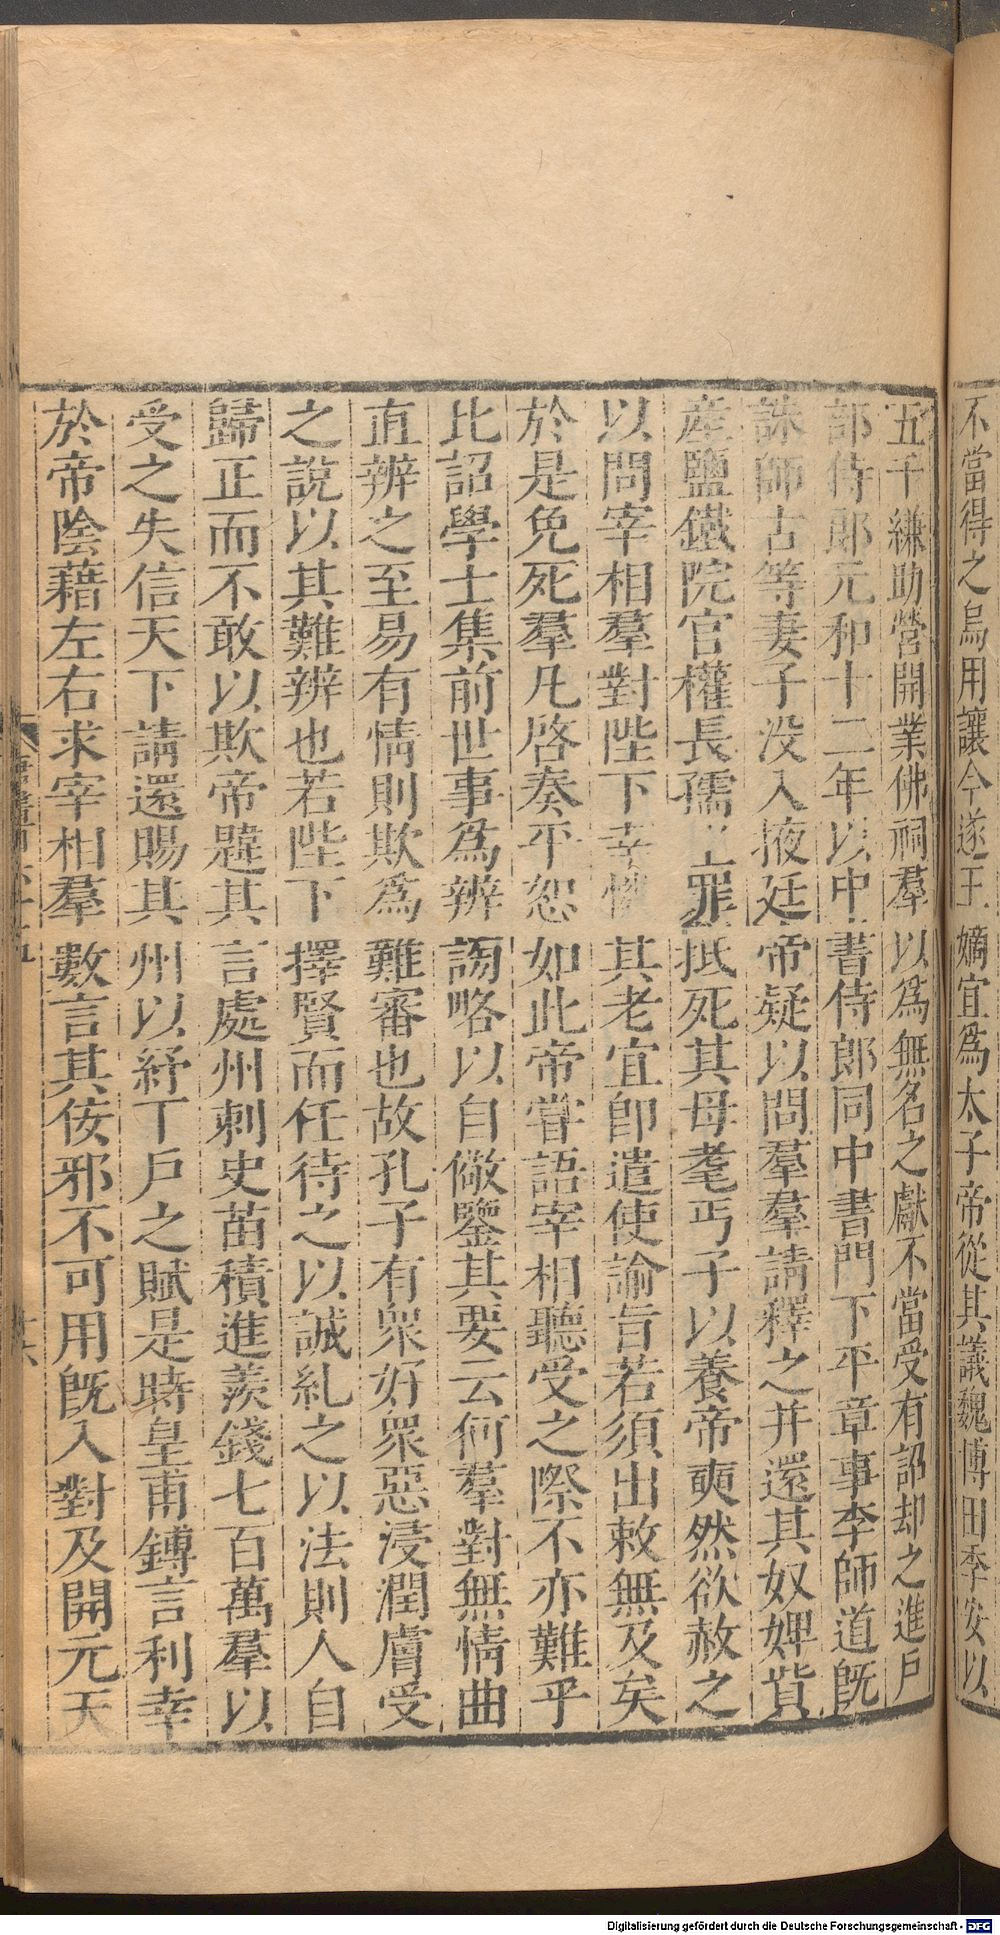 不當得之烏用讓今遂王嫡宜爲太子帝從其議魏博田季安以
五千縑助營開業佛祠羣以爲無名之獻不當受有詔却之進戶
部侍郎元和十二年以中書侍郎同中書門下平章事李師道旣
誅師古等妻子没入掖廷帝疑以問羣羣請釋之并還其奴婢貲
産鹽鐵院官權長孺坐罪抵死其母耄丐子以養帝耎然欲赦之
以問宰相羣對陛下幸憐其老宜即遣使諭旨若須出敕無及矣
於是免死羣凡啓奏平恕如此帝甞語宰相聽受之際不亦難乎
比詔學士集前世事爲辨謗略以自儆鑒其要云何羣對無情曲
直辨之至易有情則欺爲難審也故孔子有衆好衆惡浸潤膚受
之說以其難辨也若陛下擇賢而任待之以誠糺之以法則人自
歸正而不敢以欺帝韙其言處州刺史苗積進羨錢七百萬羣以
受之失信天下請還賜其州以紓下戶之賦是時皇甫鎛言利幸
於帝陰藉左右求宰相羣數言其佞邪不可用旣入對及開元天
Digitalisierung gefördert durch die Deutsche Forschungsgemeinschaft - DFG